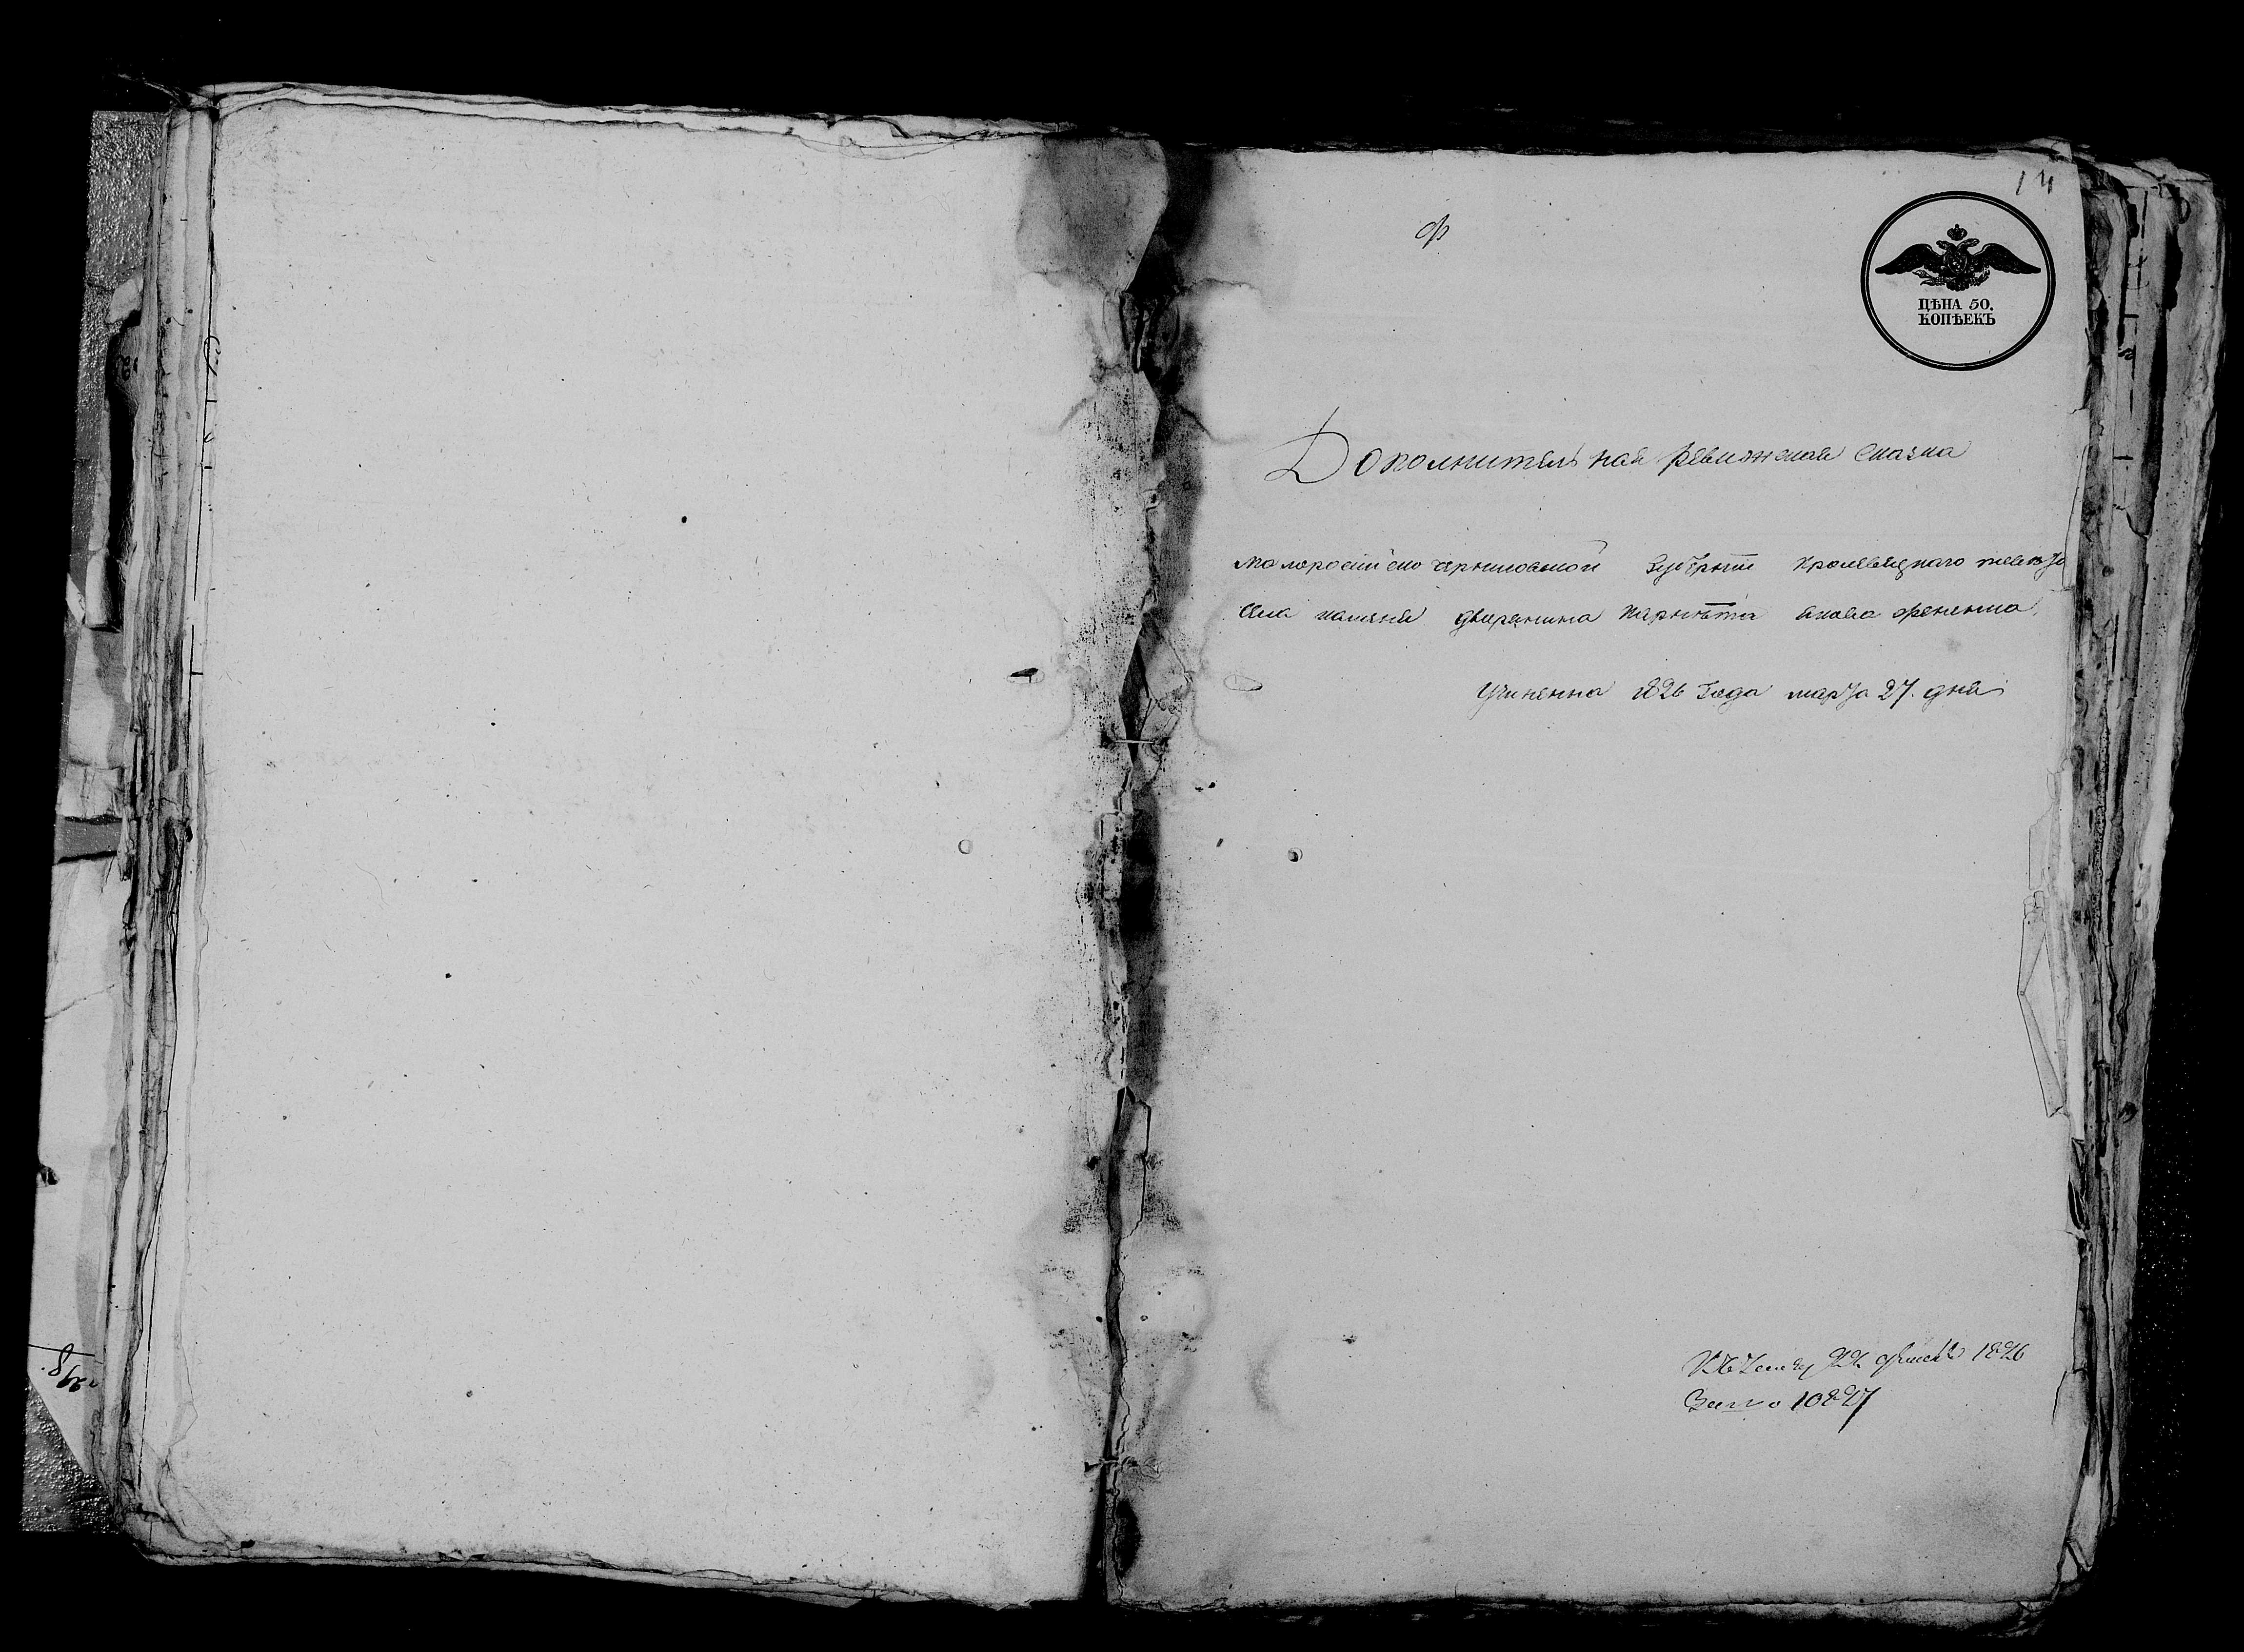 14
ф
ЦѢНА 50.
КОПѢЕКЪ
Дополнительная ревижская сказка
малоросийско черниговской Губернии кролевецкого повета
села камяня дворянина карнета якова фененка
Учиненна 1826 Года марта 27. дня
1826
10827